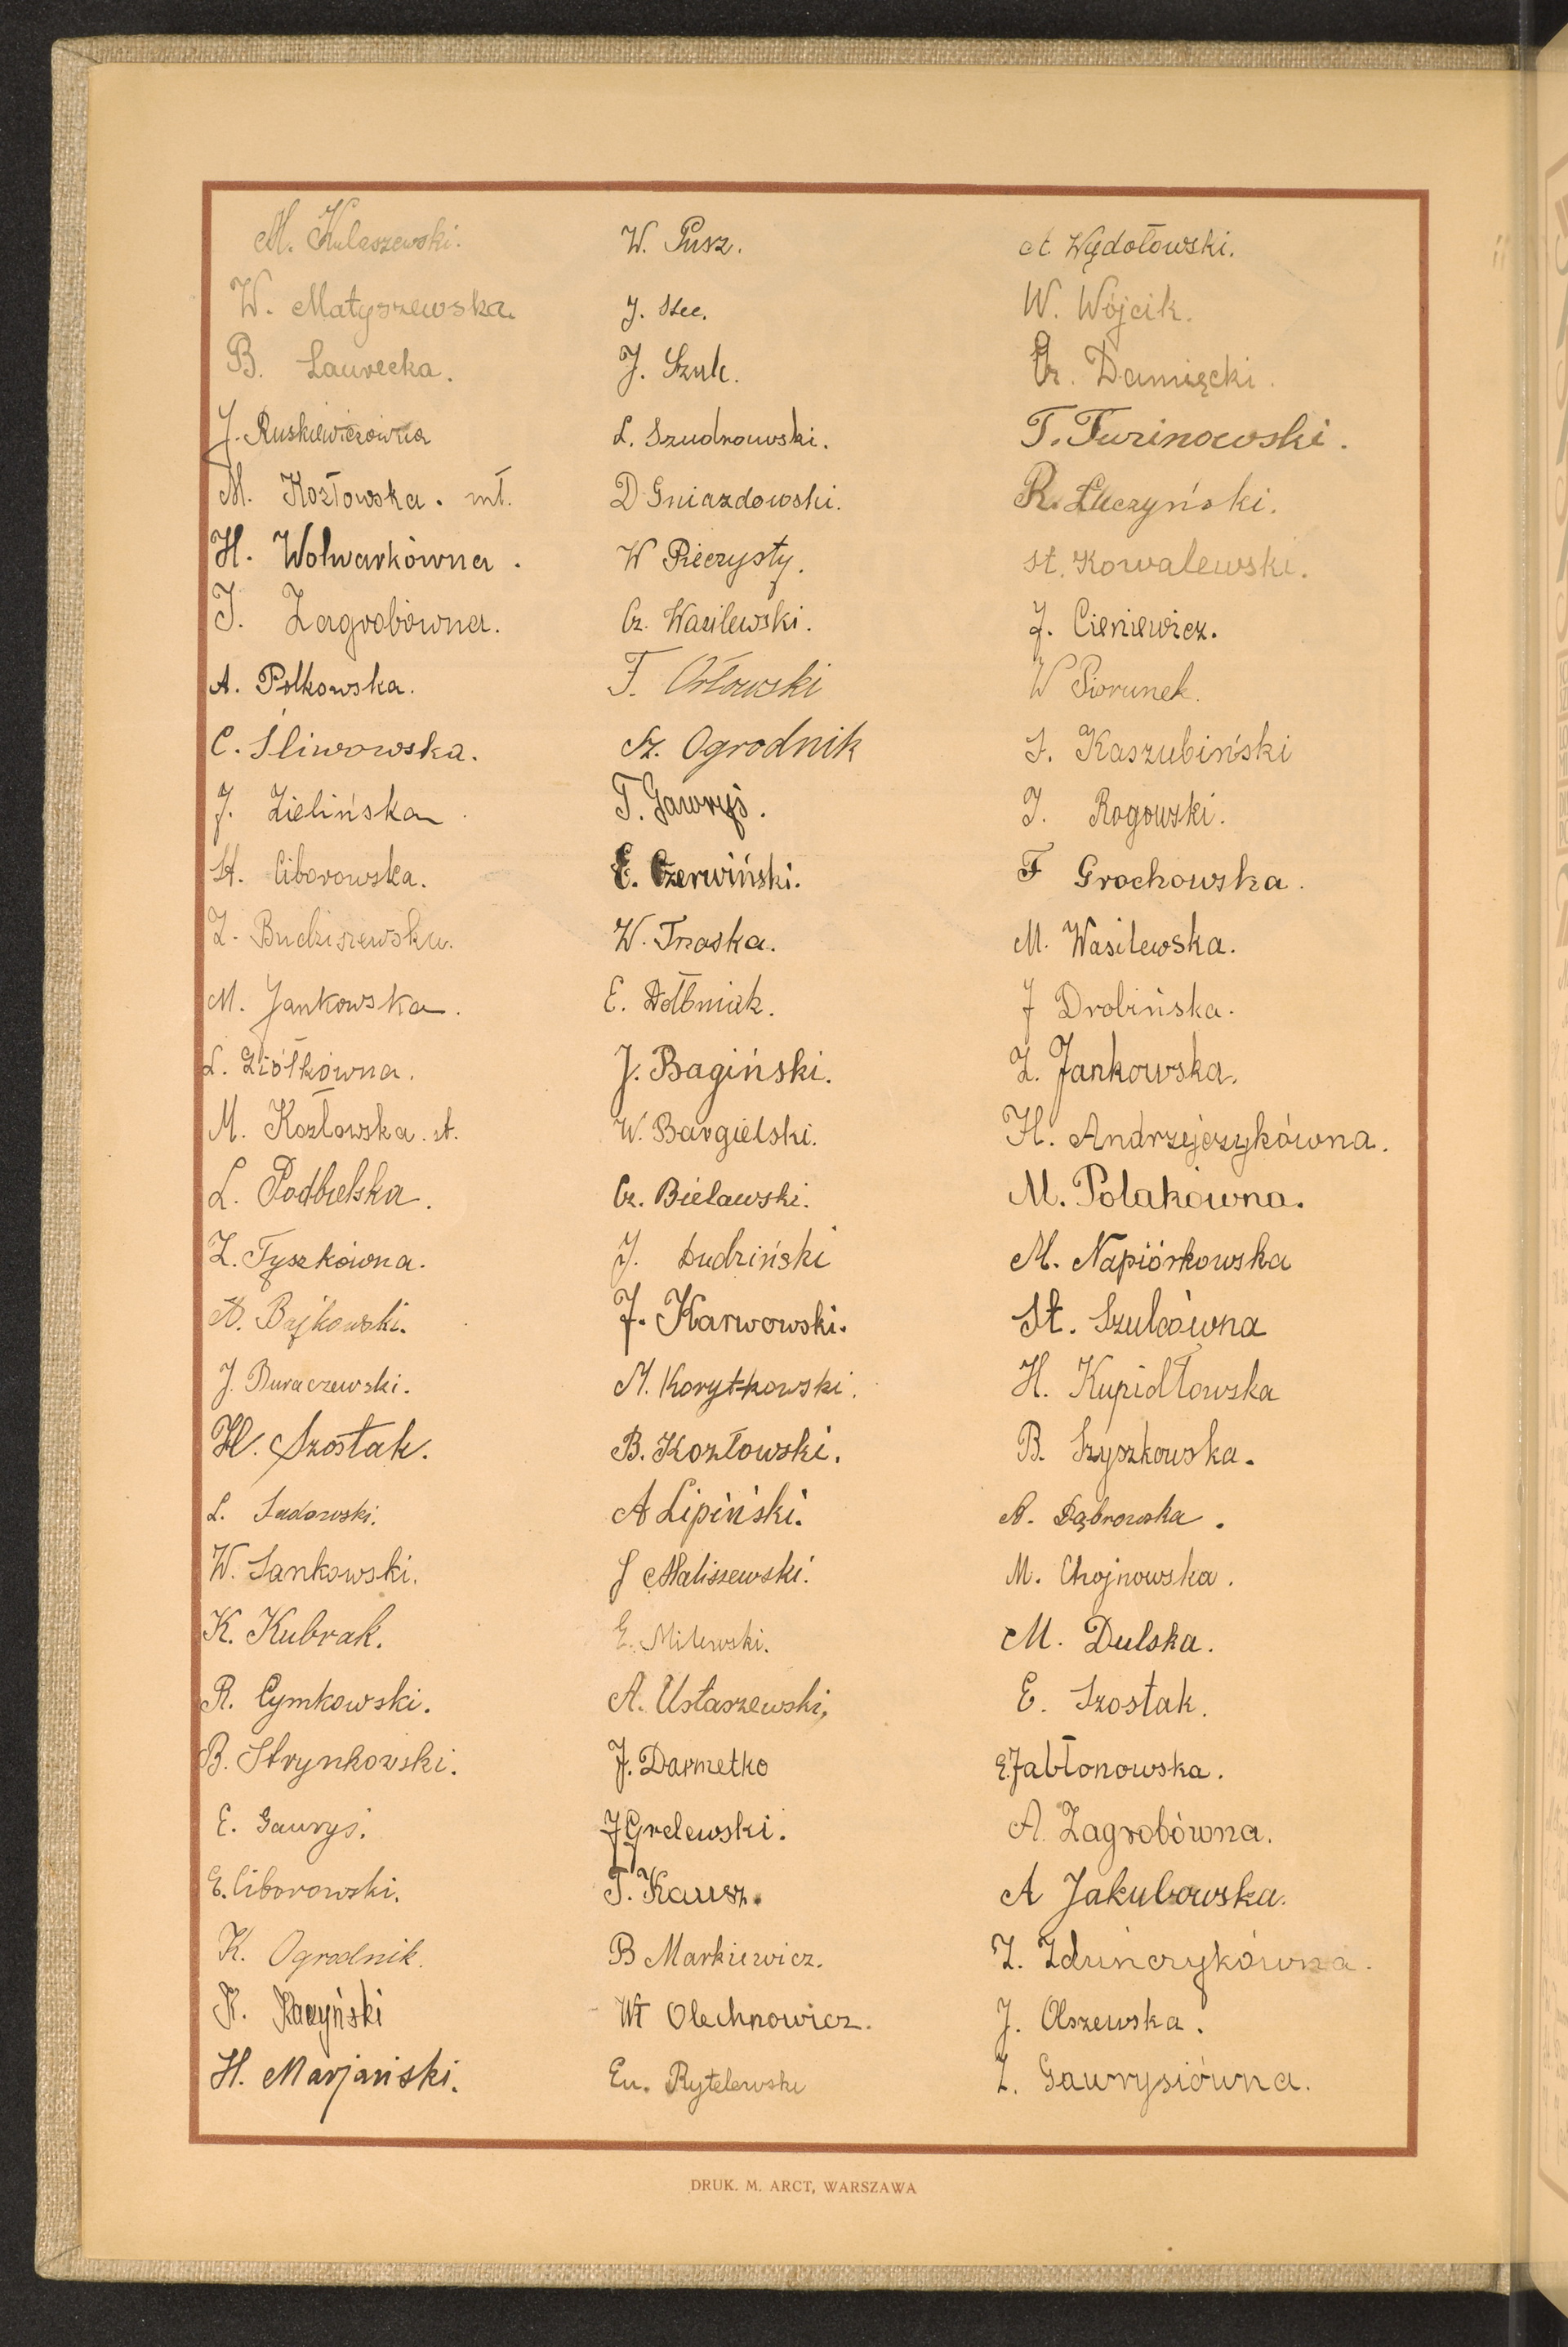 M. Kulaszewski.
W. Matyszewska.
B. Laurecka.
J. Ruskiewiczówna
M. Kozłowska. mł.
H. Wolwarkówna.
J. Zagrobówna.
A. Polkowska.
C. Śliwowska.
J. Zielińska.
St. Ciborowska.
Z. Budziszewska.
M. Jankowska.
L. Ziółkówna.
M. Kozłowska. st.
L. Podbielska.
Z. Tyszkówna.
A. Bajkowski.
J. Buraczewski.
H. Szostak.
L. Sadowski.
W. Sankowski.
K. Kubrak.
R. Cymkowski.
B. Strynkowski.
E. Gawryś.
E. Ciborowski.
K. Ogrodnik.
K. Raczyński
H. Marjański.
W. Pusz.
J. Stec.
J. Szulc.
L. Szudrowski.
D Gniazdowski.
W Pieczysty.
Cz. Wasilewski.
F. Orłowski
Sz. Ogrodnik
T. Gawryś.
E. Czerwiński.
W. Troska.
E. Dołbniak.
J. Bagiński.
W. Bargielski.
Cz. Bielawski.
J. Dudziński
J. Karwowski.
M. Korytkowski.
B. Kozłowski.
A Lipiński.
J Maliszewski.
E. Milewski.
A. Ustaszewski.
J. Darmetko
J Grelewski.
T. Kausz.
B Markiewicz.
Wł Olechnowicz.
Eu. Rytelewski
A. Wądołowski.
W. Wójcik.
Cz. Damięcki.
T. Turinowski.
R. Łuczyński.
St. Kowalewski.
J. Cieniewicz.
W Piorunek.
S. Kaszubiński
J. Rogowski.
F Grochowska.
M. Wasilewska.
J Drobińska.
Z. Jankowska.
H. Andrzejczykówna.
M. Polakówna.
M. Napiórkowska
St. Szulcówna
H. Kupidłowska
B. Szyszkowska.
A. Dąbrowska.
M. Chojnowska.
M. Dulska.
E. Szostak.
E. Jabłonowska.
A. Zagrobówna.
A Jakubowska.
Z. Zduńczykówna.
J. Olszewska.
Z. Gawrysiówna.
DRUK. M. ARCT, WARSZAWA